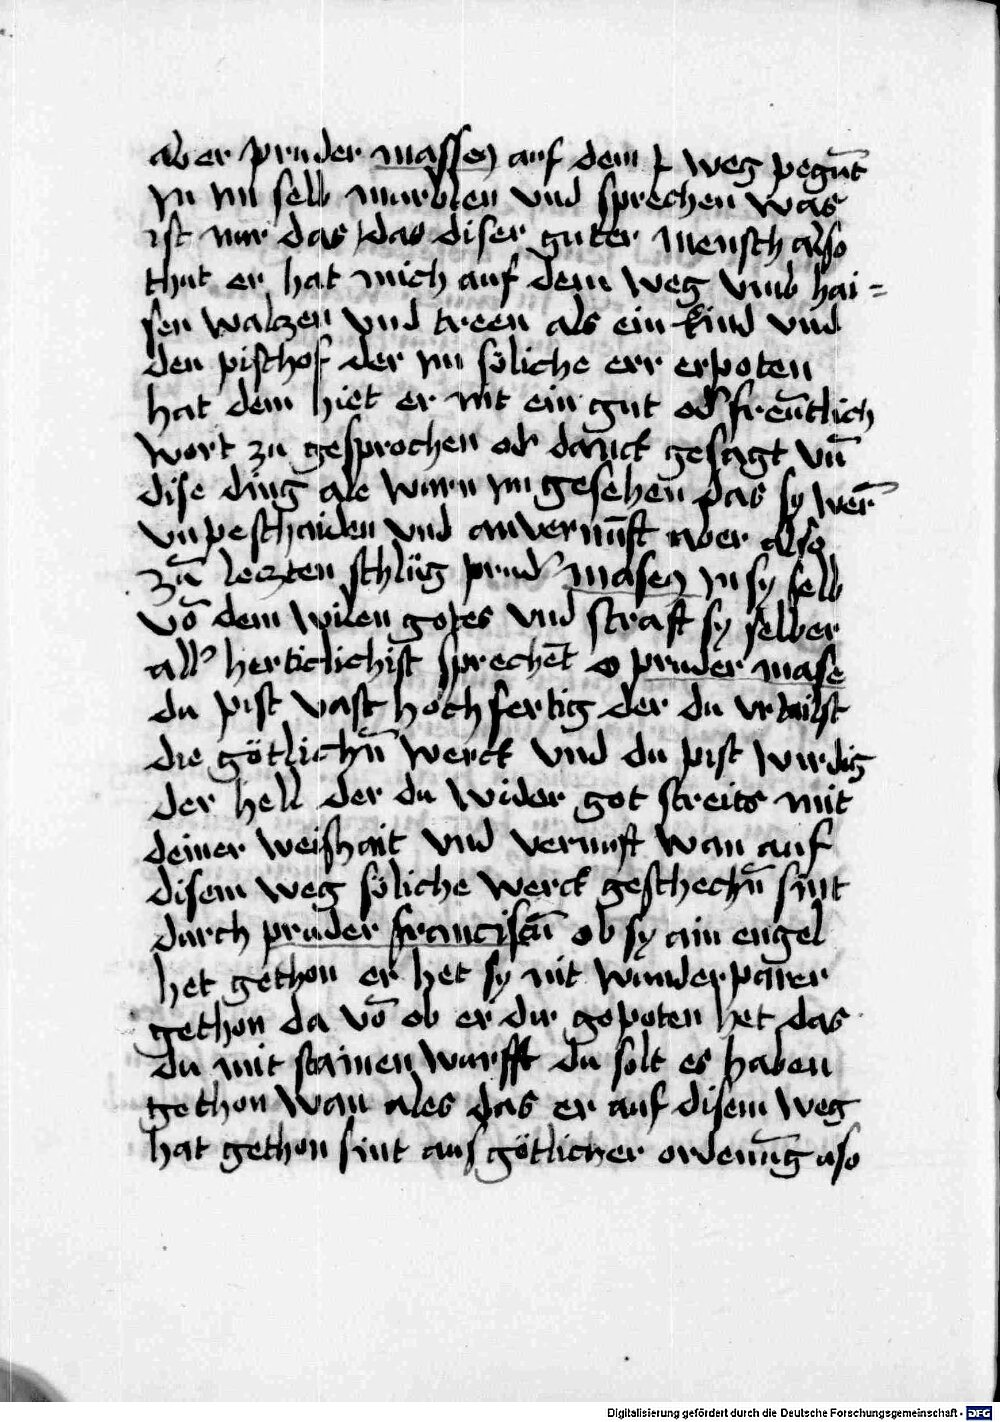 aber pruder massen auf dem weg pegūt
yn ym selb murblen vnd sprechen was
ist nur das das diser guter mensch also
thut er hat mich auf dem weg vmb hai=
sen walczen vnd treen als ein kind vnd
den pischof der ym söliche err erpoten
hat dem hiet er nit ein gut od' freūtlich
wort zu gesprochen od' danck gesagt vn̄
dise ding ale warn ym gesehen das sy wer̄
vnpeschaiden vnd anvernūft aber also
zū leczten schlüg prud' masen yn sy selb
vō dem wilen gotes vnd straft sy selber
all' herticlichist sprechēt o pruder mase
du pist vast hochfertig der du vrtailst
die götlichn̄ werck vnd du pist wirdig
der hell der du wider got streits mit
deiner weishait vnd vernuft wan auf
disem weg söliche werck geschechn̄ sint
durch pruder franciscū ob sy ain engel
het gethon er het sy nit wunderparer
gethon da vō ob er dir gepoten het das
du mit stainen wurfft du solt es haben
gethon wan ales das er auf disem weg
hat gethon sint aus götlicher ordenūg aso
Digitalisierung gefördert durch die Deutsche Forschungsgemeinschaft - DFG